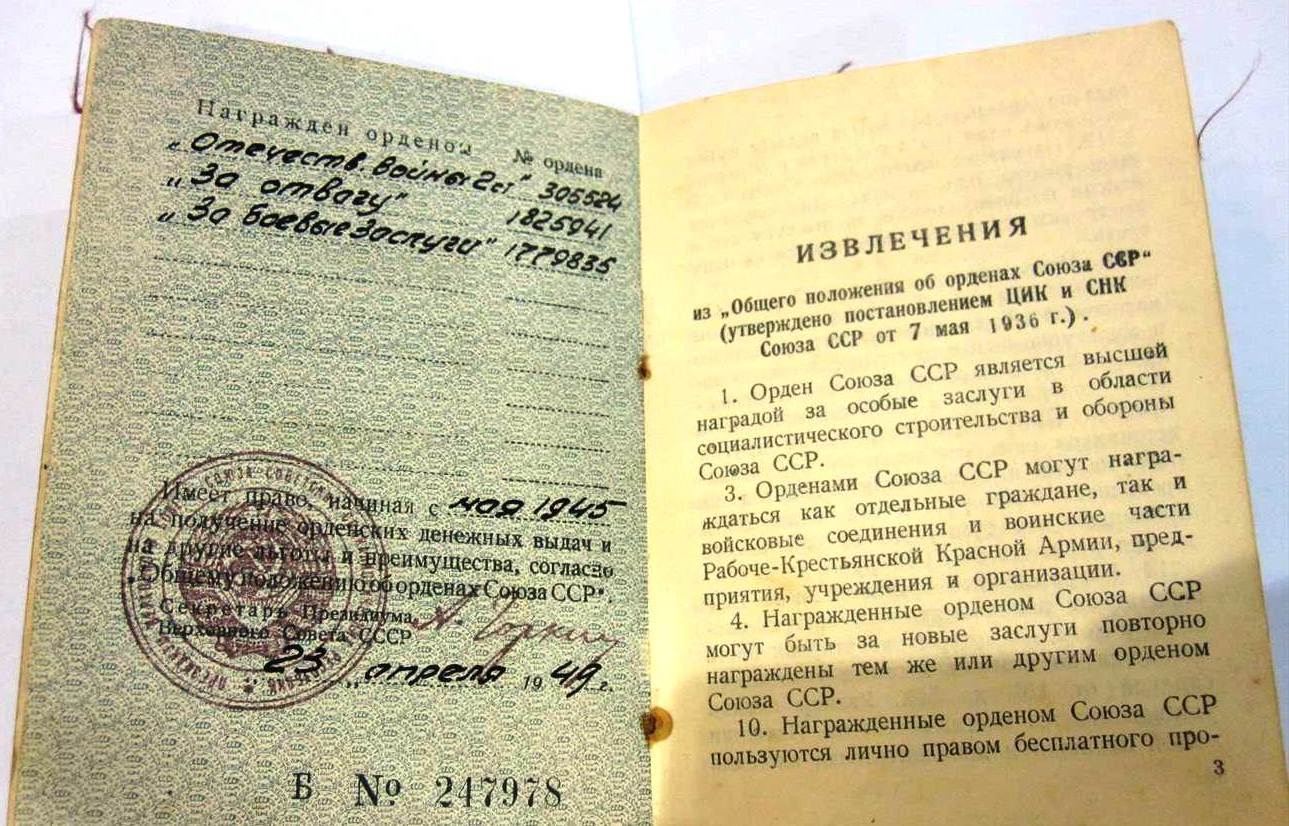 Награжден орденом № ордена
„Отечеств. войны 2 ст" 305524
„За отвагу" 1825941
„За боевые заслуги" 1779835
Имеет право, начиная с мая 1945
на получение орденских денежных выдач и
на другие льготы и преимущества, согласно
„Общему положению об орденах Союза ССР".
Секретарь Президиума
Верховного Совета СССР
А. Горкин
23 „ апреля 1949 г.
Б № 247978
ИЗВЛЕЧЕНИЯ
из „Общего положения об орденах Союза ССР"
(утверждено постановлением ЦИК и СНК
Союза ССР от 7 мая 1936 г.).
1. Орден Союза ССР является высшей
наградой за особые заслуги в области
социалистического строительства и обороны
Союза ССР.
3. Орденами Союза ССР могут награ-
ждаться как отдельные граждане, так и
войсковые соединения и воинские части
Рабоче-Крестьянской Красной Армии, пред-
приятия, учреждения и организации.
4. Награжденные орденом Союза ССР
могут быть за новые заслуги повторно
награждены тем же или другим орденом
Союза ССР.
10. Награжденные орденом Союза ССР
пользуются лично правом бесплатного про-
3